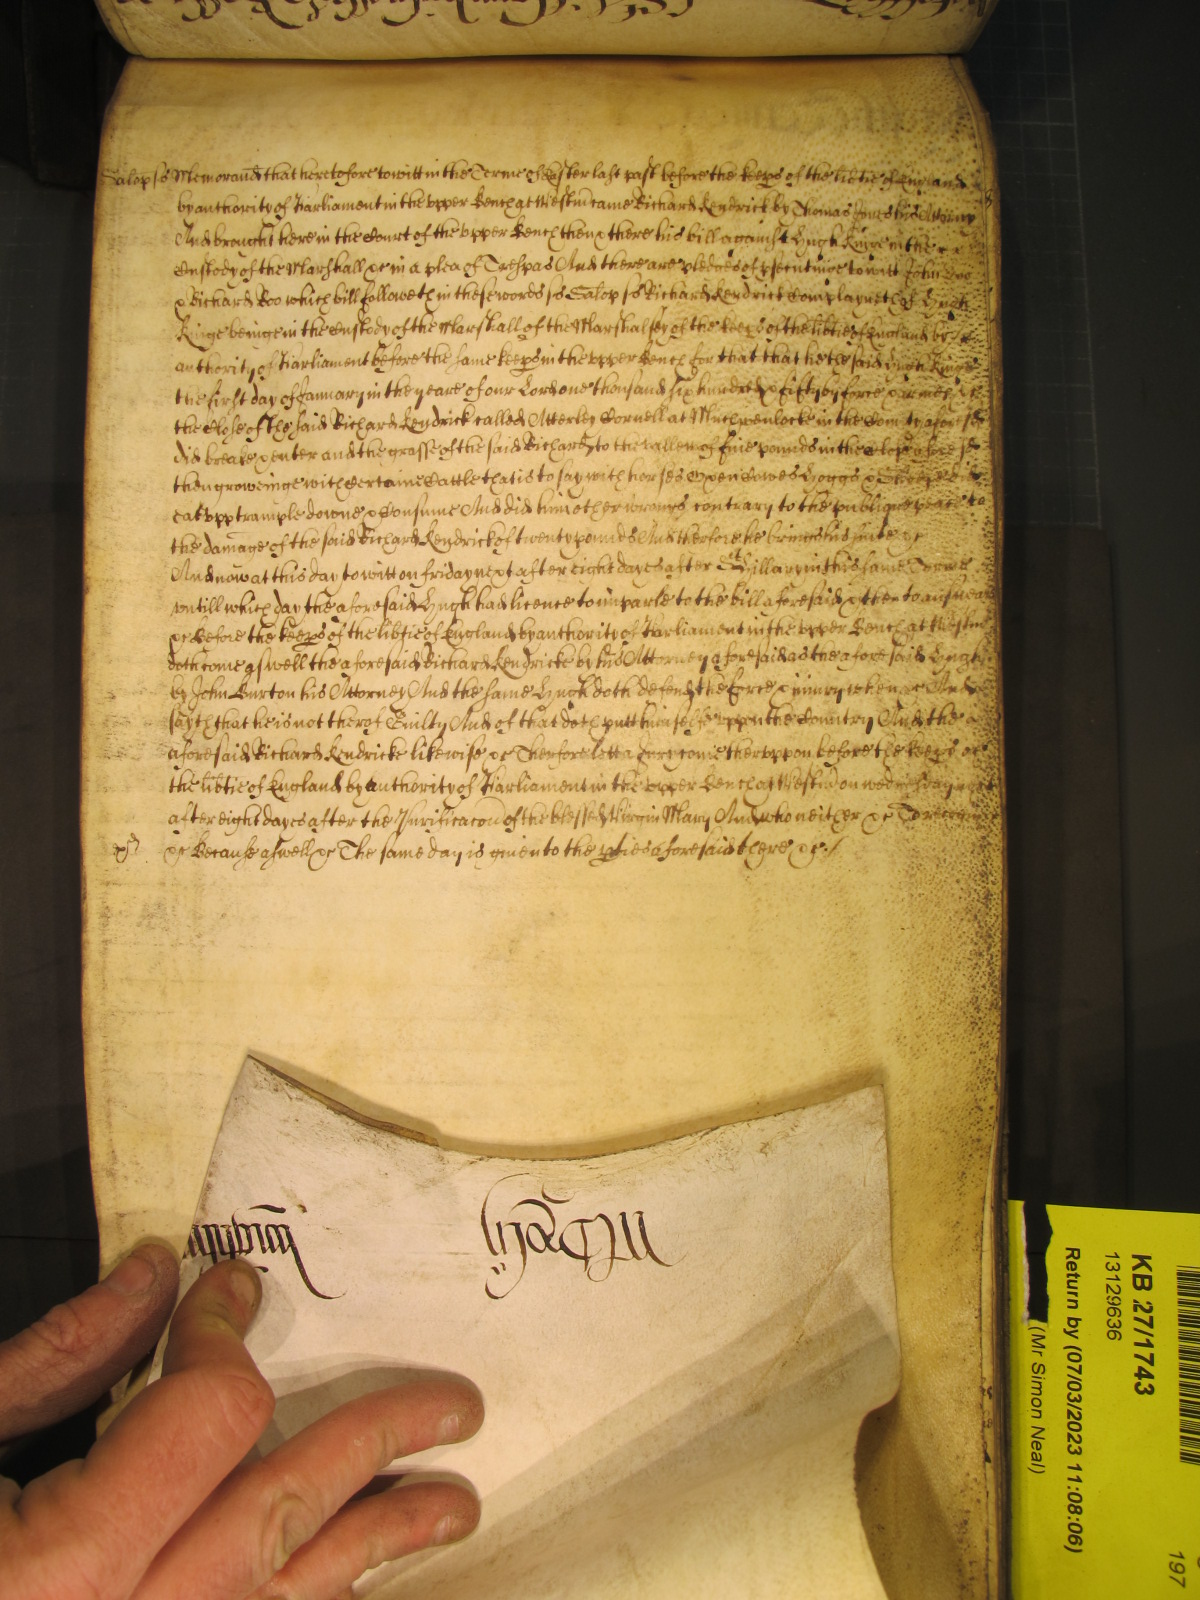 Salop ss Memorand that heretofore to witt in the Terme of Easter last past before the keeps of the libtie of England
by authority of Parliament in the upper Bench at Westm came Richard Kendrick by Thomas Jones his Attorny
And brought here in the Court of the upper Bench then & there his bill against Hugh Kinge in the
Custody of the Marshall &c in a plea of Trespas And there are pledges of psecutinge to witt John Doo
& Richard Roo which bill followeth in these words ss Salop ss Richard Kendrick Complayneth of Hugh
Kinge beinge in the Custody of the Marshall of the Marshalsey of the keeps of the libtie of England by
authority of Parliament before the same keeps in the upper Bench for that that he the said Hugh Kinge
the first day of January in the yeare of our Lord one thousand six hundred & fifty by force & armes &c
the Close of the said Richard Kendrick called Atterley Cornell at Muchwenlocke in the County aforesd
did breake & enter and the grasse of the said Richard to the vallew of five pounds in the Close aforesd
then groweinge with Certaine Cattle that is to say with horses Oxen Cowes Hoggs & Sheepe did
eat upp trample downe & Consume And did him other wrongs contrary to the publique peace to
the damage of the said Richard Kendrick of twenty pounds And therfore he brings his suite &c
And now at this day to witt on friday next after eight dayes after St Hillary in this same Terme
untill which day the aforesaid Hugh had licence to imparle to the bill aforesaid & then to answear
&c Before the keeps of the libtie of England by authority of Parliament in the upper Bench at Westm
doth come aswell the aforesaid Richard Kendricke by his Attorney aforesaid as the aforesaid Hugh
by John Burton his Attorney And the same Hugh doth defend the force & iniury when &c And
sayth that he is not therof Guilty And of that doth putt himselfe uppon the Country And the
aforesaid Richard Kendricke likewise &c Therfore lett a Jury come theruppon before the keeps of
the libtie of England by authority of Parliament in the upper Bench at Westm on wednesday next
after eight dayes after the Purificacon of the blessed Virgin Mary And who neither &c To recognize
&c Because aswell &c The same day is given to the pties aforesaid there &c
KB 27/1743
13129636
Return by (07/03/2023 11:08:06)
(Mr Simon Neal)
197